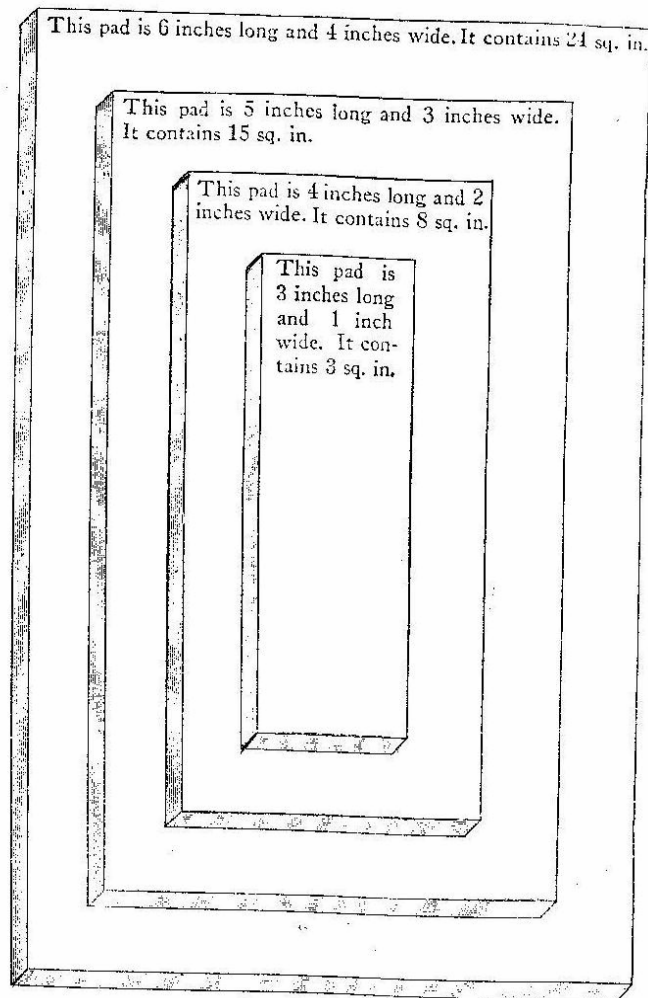 This pad is 6 inches long and 4 inches wide. It contains 24 sq. in.
This pad is 5 inches long and 3 inches wide.
It contains 15 sq. in.
This pad is 4 inches long and 2
inches wide. It contains 8 sq. in.
This pad is
3 inches long
and 1 inch
wide. It con-
tains 3 sq. in.